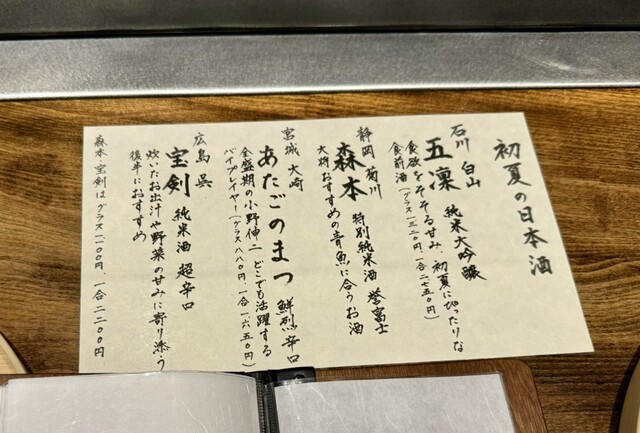 初夏の日本酒
石川 白山
五凛 純米大吟醸
食欲をそそる甘み、初夏にぴったりな
食前酒(グラス一三二〇円、一合二七五〇円)
静岡 菊川
森本 特別純米酒 誉富士
大将おすすめの青魚に合うお酒
宮城 大崎
あたごのまつ 鮮烈辛口
全盛期の小野伸二 どこでも活躍する
バイプレイヤー(グラス八八〇円、一合一、六五〇円)
広島 呉
宝剣 純米酒 超辛口
炊いたお出汁や野菜の甘みに寄り添う
後半におすすめ
森本 宝剣はグラス一一〇〇円、一合二二〇〇円